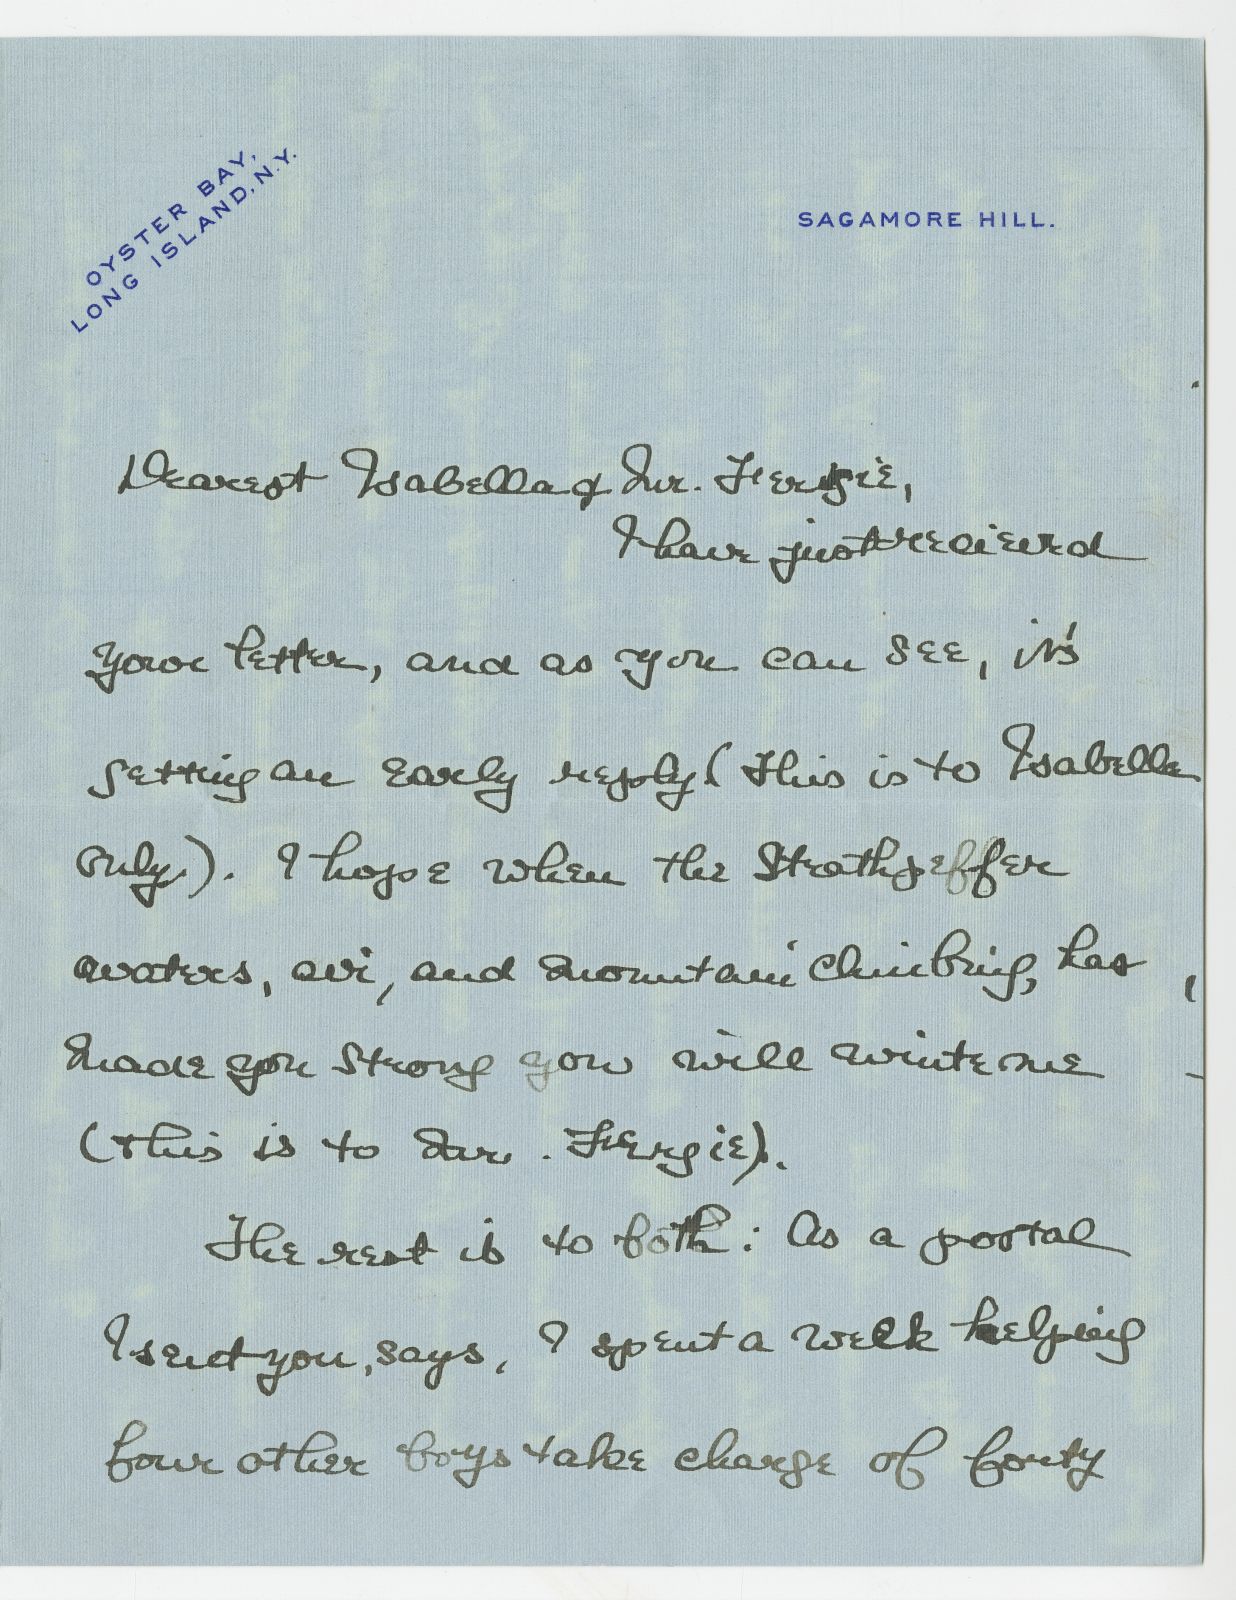 OYSTER BAY,
LONG ISLAND, N.Y.
SAGAMORE HILL.
Dearest Isabella & Mr. Fergie,
I have just recieved
your letter, and as you can see, it's
getting an early reply (this is to Isabella
only.). I hope when the Strathpeffer
waters, air, and mountain climbing, has
made you strong you will write me
(this is to Mr. Fergie).
The rest is to both: As a postal
I sent you, says, I spent a week helping
four other boys take charge of forty